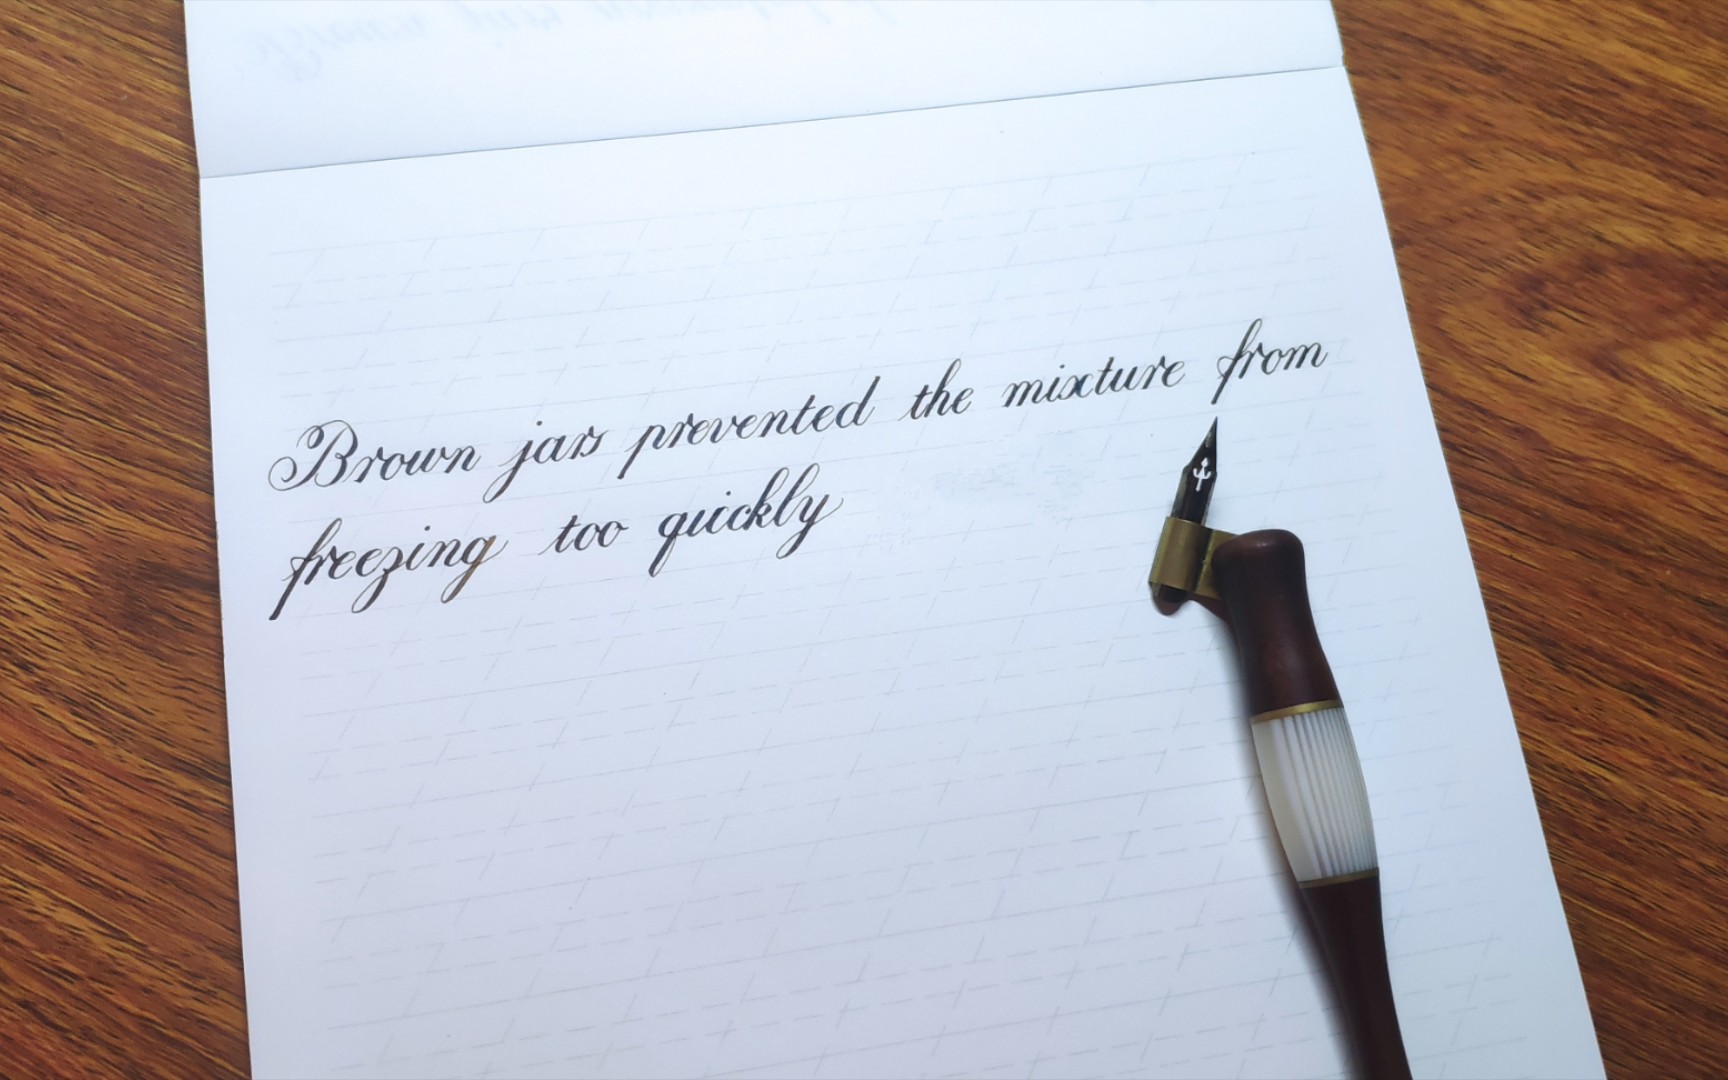 Brown jars prevented the mixture from
freezing too quickly